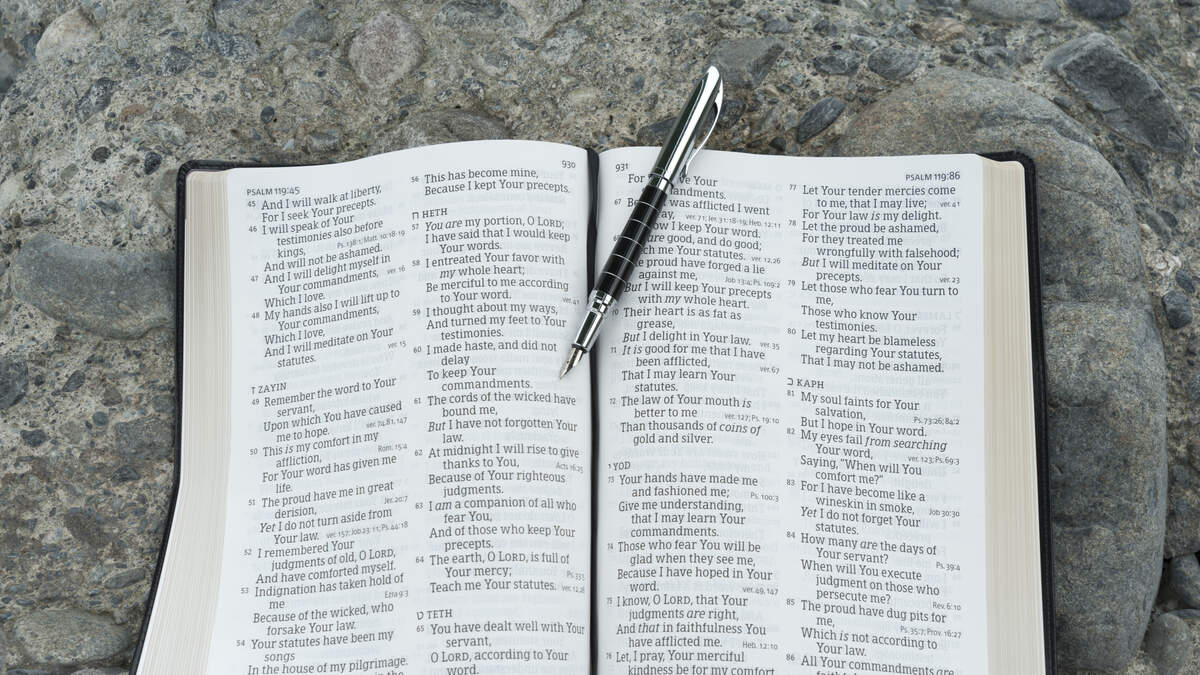 PSALM 119:45
45 And I will walk at liberty,
For I seek Your precepts.
46 I will speak of Your
testimonies also before
kings, Ps. 138:1; Matt. 10:18-19
And will not be ashamed.
47 And I will delight myself in
Your commandments, ver. 16
Which I love.
48 My hands also I will lift up to
Your commandments,
Which I love,
And I will meditate on Your
statutes. ver. 15
ז ZAYIN
49 Remember the word to Your
servant,
Upon which You have caused
me to hope. ver. 74,81,147
50 This is my comfort in my
affliction, Rom. 15:4
For Your word has given me
life.
51 The proud have me in great
derision, Jer. 20:7
Yet I do not turn aside from
Your law. ver. 157; Job 23:11; Ps. 44:18
52 I remembered Your
judgments of old, O LORD,
And have comforted myself.
53 Indignation has taken hold of
me Ezra 9:3
Because of the wicked, who
forsake Your law.
54 Your statutes have been my
songs
In the house of my pilgrimage.
930
56 This has become mine,
Because I kept Your precepts.
ח HETH
57 You are my portion, O LORD;
I have said that I would keep
Your words.
58 I entreated Your favor with
my whole heart;
Be merciful to me according
to Your word. ver. 41
59 I thought about my ways,
And turned my feet to Your
testimonies.
60 I made haste, and did not
delay
To keep Your
commandments.
61 The cords of the wicked have
bound me,
But I have not forgotten Your
law.
62 At midnight I will rise to give
thanks to You, Acts 16:25
Because of Your righteous
judgments.
63 I am a companion of all who
fear You,
And of those who keep Your
precepts.
64 The earth, O LORD, is full of
Your mercy; Ps. 33:5
Teach me Your statutes. ver. 12,26
ט TETH
65 You have dealt well with Your
servant,
O LORD, according to Your
word.
931
For ve Your
andments.
67 Be was afflicted I went
ay, ver. 71; Jer. 31:18-19; Heb. 12:11
ow I keep Your word.
are good, and do good;
ch me Your statutes. ver. 12,26
e proud have forged a lie
against me, Job 13:4; Ps. 109:2
But I will keep Your precepts
with my whole heart.
70 Their heart is as fat as
grease,
But I delight in Your law. ver. 35
71 It is good for me that I have
been afflicted, ver. 67
That I may learn Your
statutes.
72 The law of Your mouth is
better to me ver. 127; Ps. 19:10
Than thousands of coins of
gold and silver.
י YOD
73 Your hands have made me
and fashioned me; Ps. 100:3
Give me understanding,
that I may learn Your
commandments.
74 Those who fear You will be
glad when they see me,
Because I have hoped in Your
word. ver. 49, 147
75 I know, O LORD, that Your
judgments are right,
And that in faithfulness You
have afflicted me. Heb. 12:10
76 Let, I pray, Your merciful
kindness be for my comfort
PSALM 119:86
77 Let Your tender mercies come
to me, that I may live; ver. 41
For Your law is my delight.
78 Let the proud be ashamed,
For they treated me
wrongfully with falsehood;
But I will meditate on Your
precepts. ver. 23
79 Let those who fear You turn to
me,
Those who know Your
testimonies.
80 Let my heart be blameless
regarding Your statutes,
That I may not be ashamed.
כ KAPH
81 My soul faints for Your
salvation, Ps. 73:26; 84:2
But I hope in Your word.
82 My eyes fail from searching
Your word, ver. 123; Ps. 69:3
Saying, "When will You
comfort me?"
83 For I have become like a
wineskin in smoke, Job 30:30
Yet I do not forget Your
statutes.
84 How many are the days of
Your servant? Ps. 39:4
When will You execute
judgment on those who
persecute me? Rev. 6:10
85 The proud have dug pits for
me, Ps. 35:7; Prov. 16:27
Which is not according to
Your law.
86 All Your commandments are